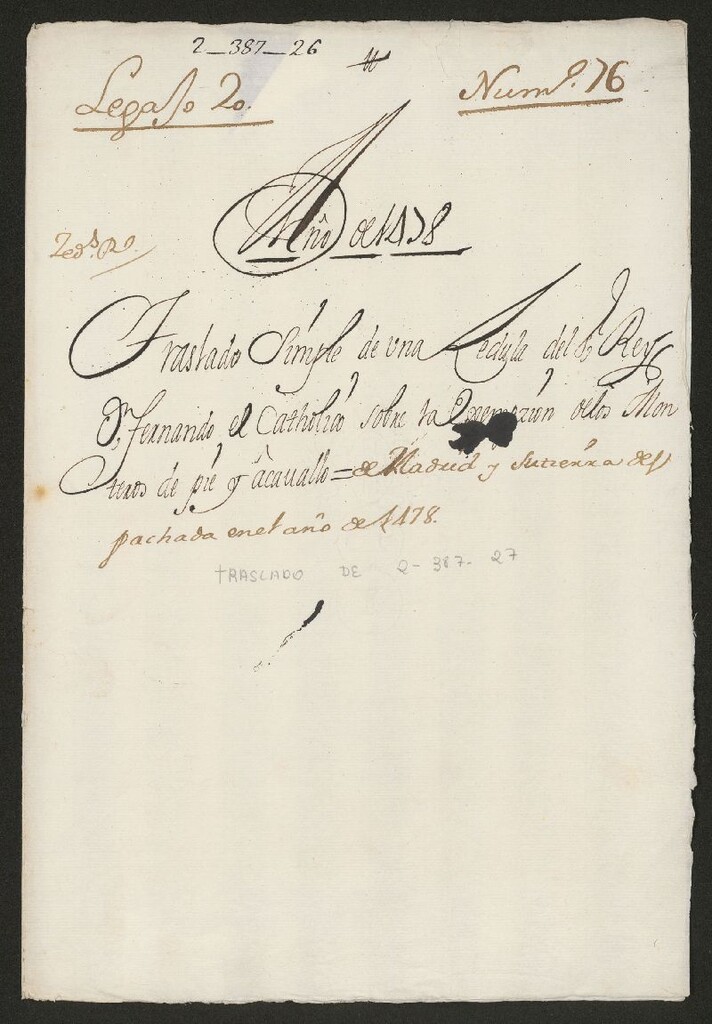 2_387_26
Legajo 2o.
Num.o 76
Año de 1478
Traslado Simple de una Zedula del Sr. Rey
Dn. fernando el Catholico sobre la Exempzion de los Mon
teros de pie y acauallo = de Madrid y su tierra des
pachada en el año de 1478.
TRASLADO DE 2-387-27